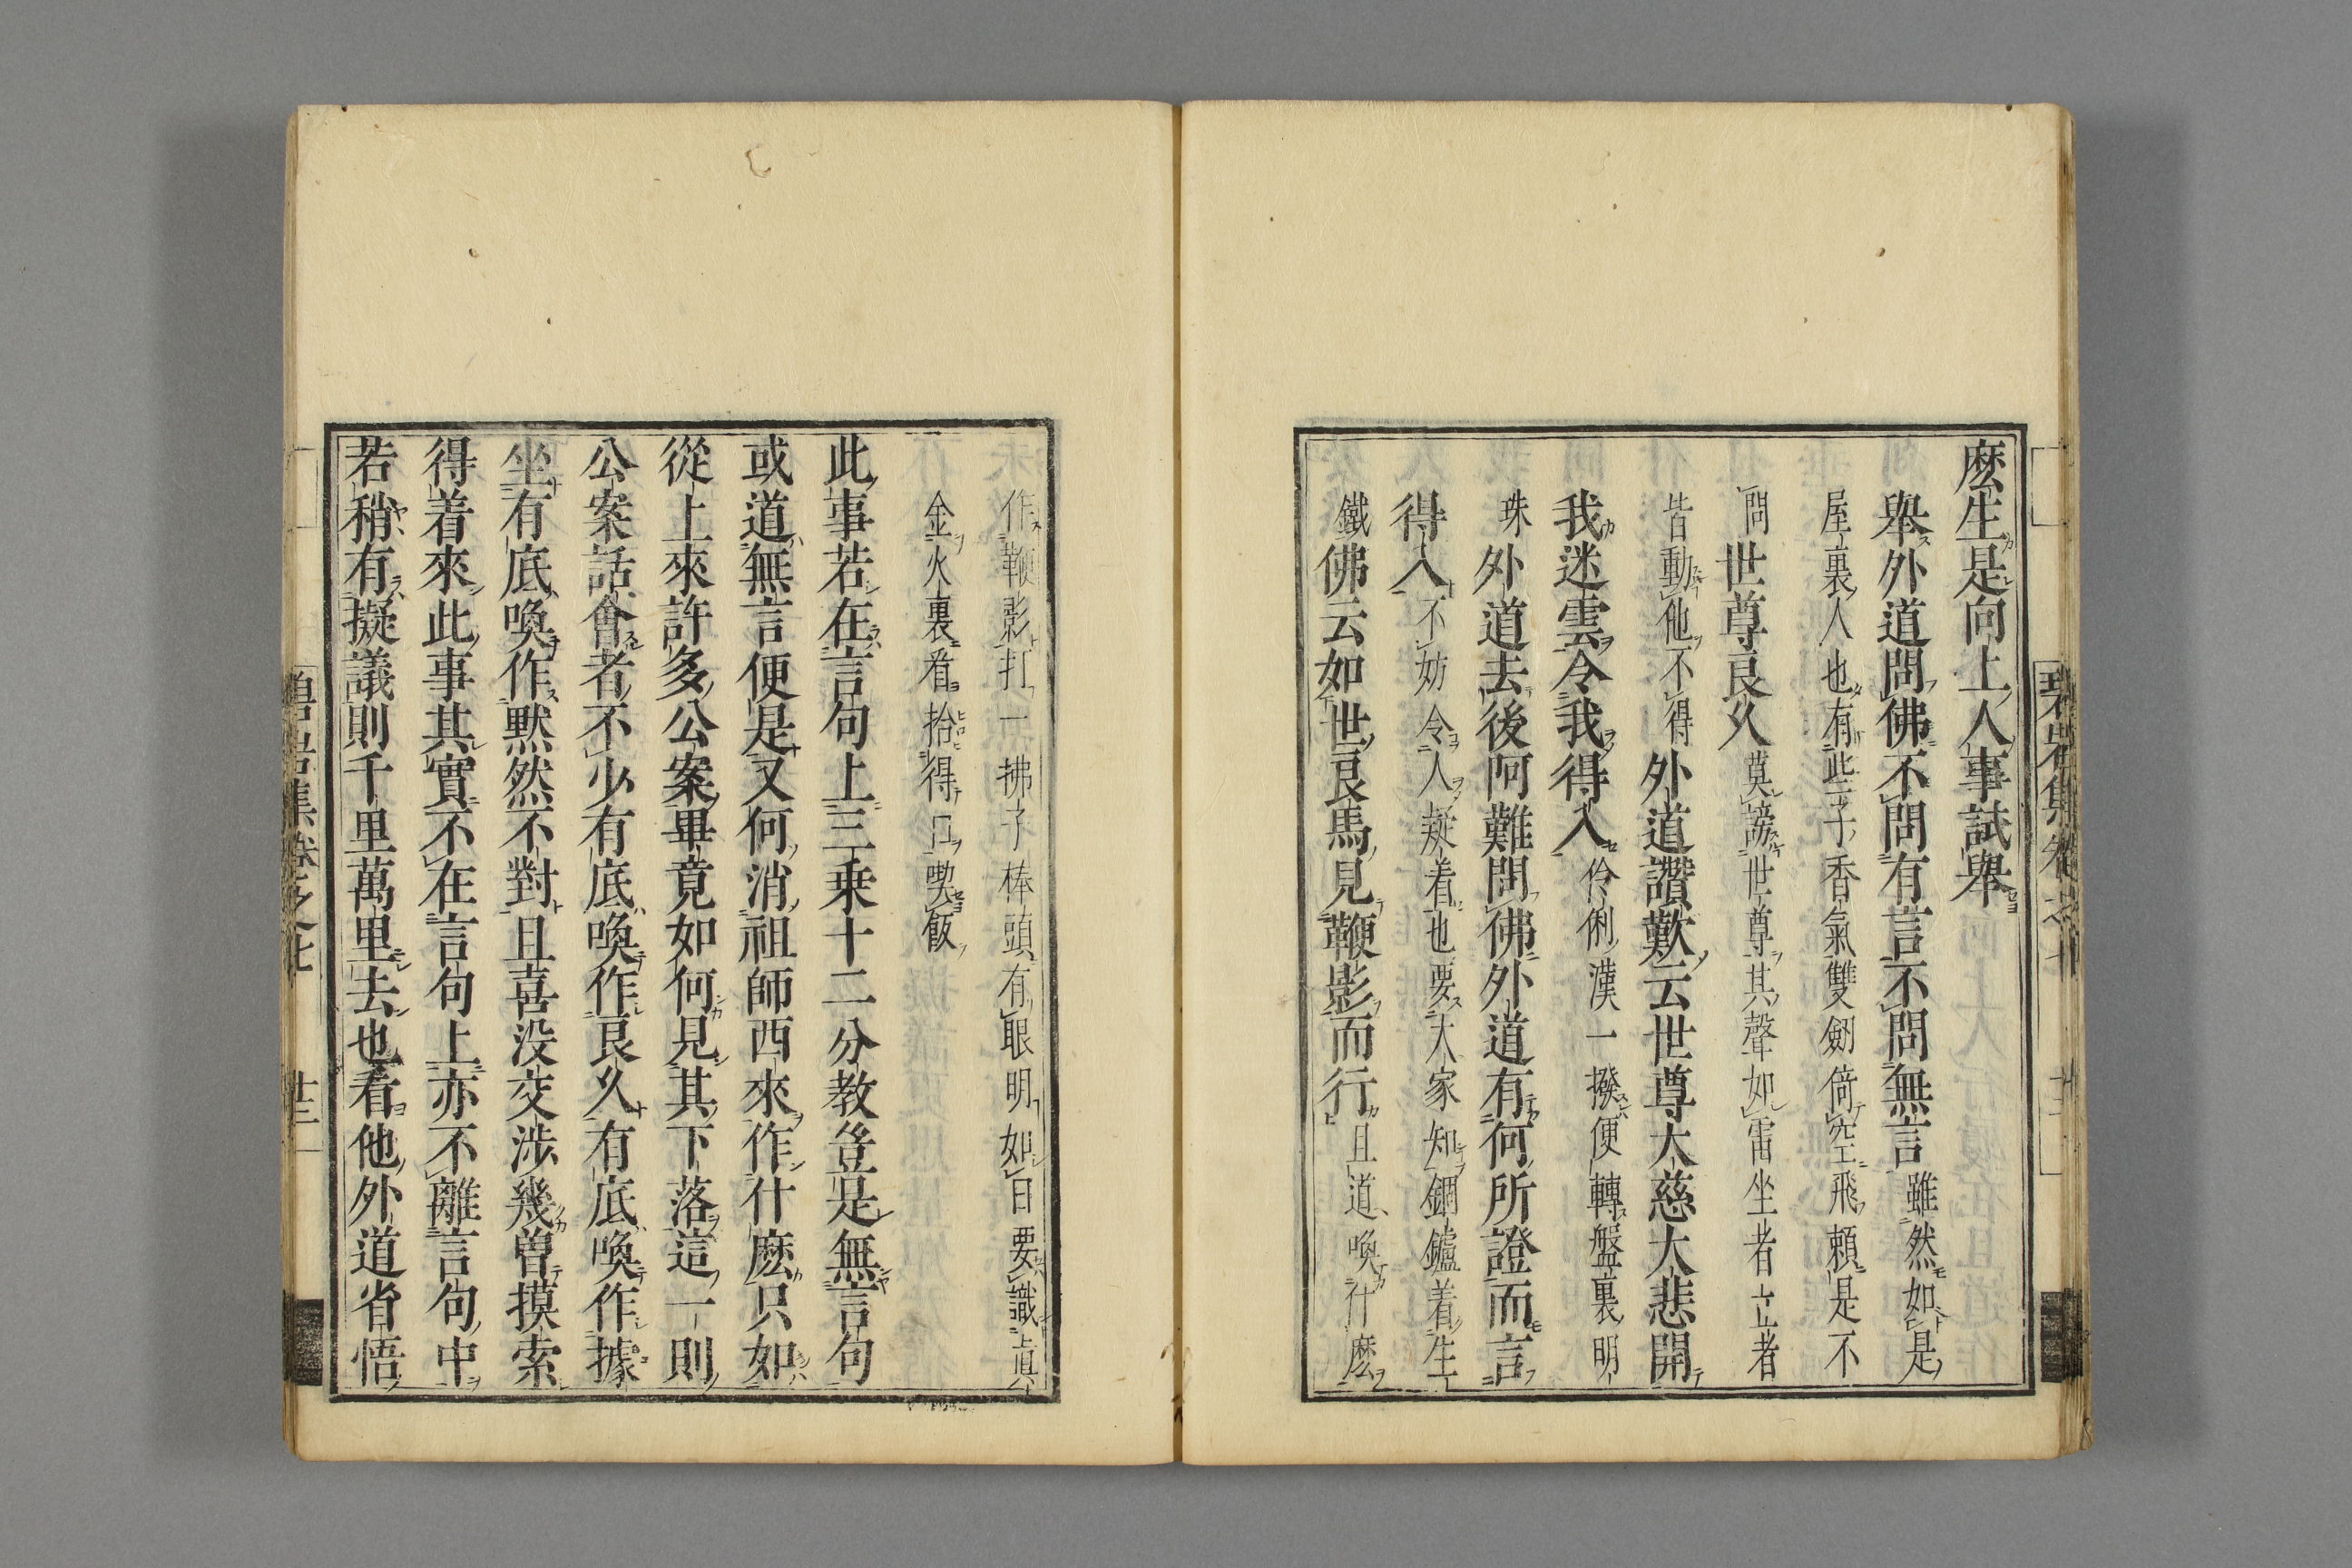 麽生是向上人事試舉
舉外道問佛不問有言不問無言雖然如是
屋裏人也有些子香氣雙劒倚空飛頼是不
問世尊良久莫謗世尊其聲如雷坐者立者
皆動他不得外道讚歎云世尊大慈大悲開
我迷雲令我得入伶俐漢一撥便轉盤裏明
珠外道去後阿難問佛外道有何所證而言
得入不妨令人疑着也要大家知錮鑪着生
鐵佛云如世良馬見鞭影而行且道喚什麽
作鞭影打一拂子棒頭有眼明如日要識眞
金火裏看拾得口喫飯
此事若在言句上三乗十二分教豈是無言句
或道無言便是又何消祖師西來作什麽只如
從上來許多公案畢竟如何見其下落這一則
公案話會者不少有底喚作良久有底喚作據
坐有底喚作黙然不對且喜没交渉幾曽摸索
得着來此事其實不在言句上亦不離言句中
若稍有擬議則千里萬里去也看他外道省悟
碧岩集卷之七 廿三